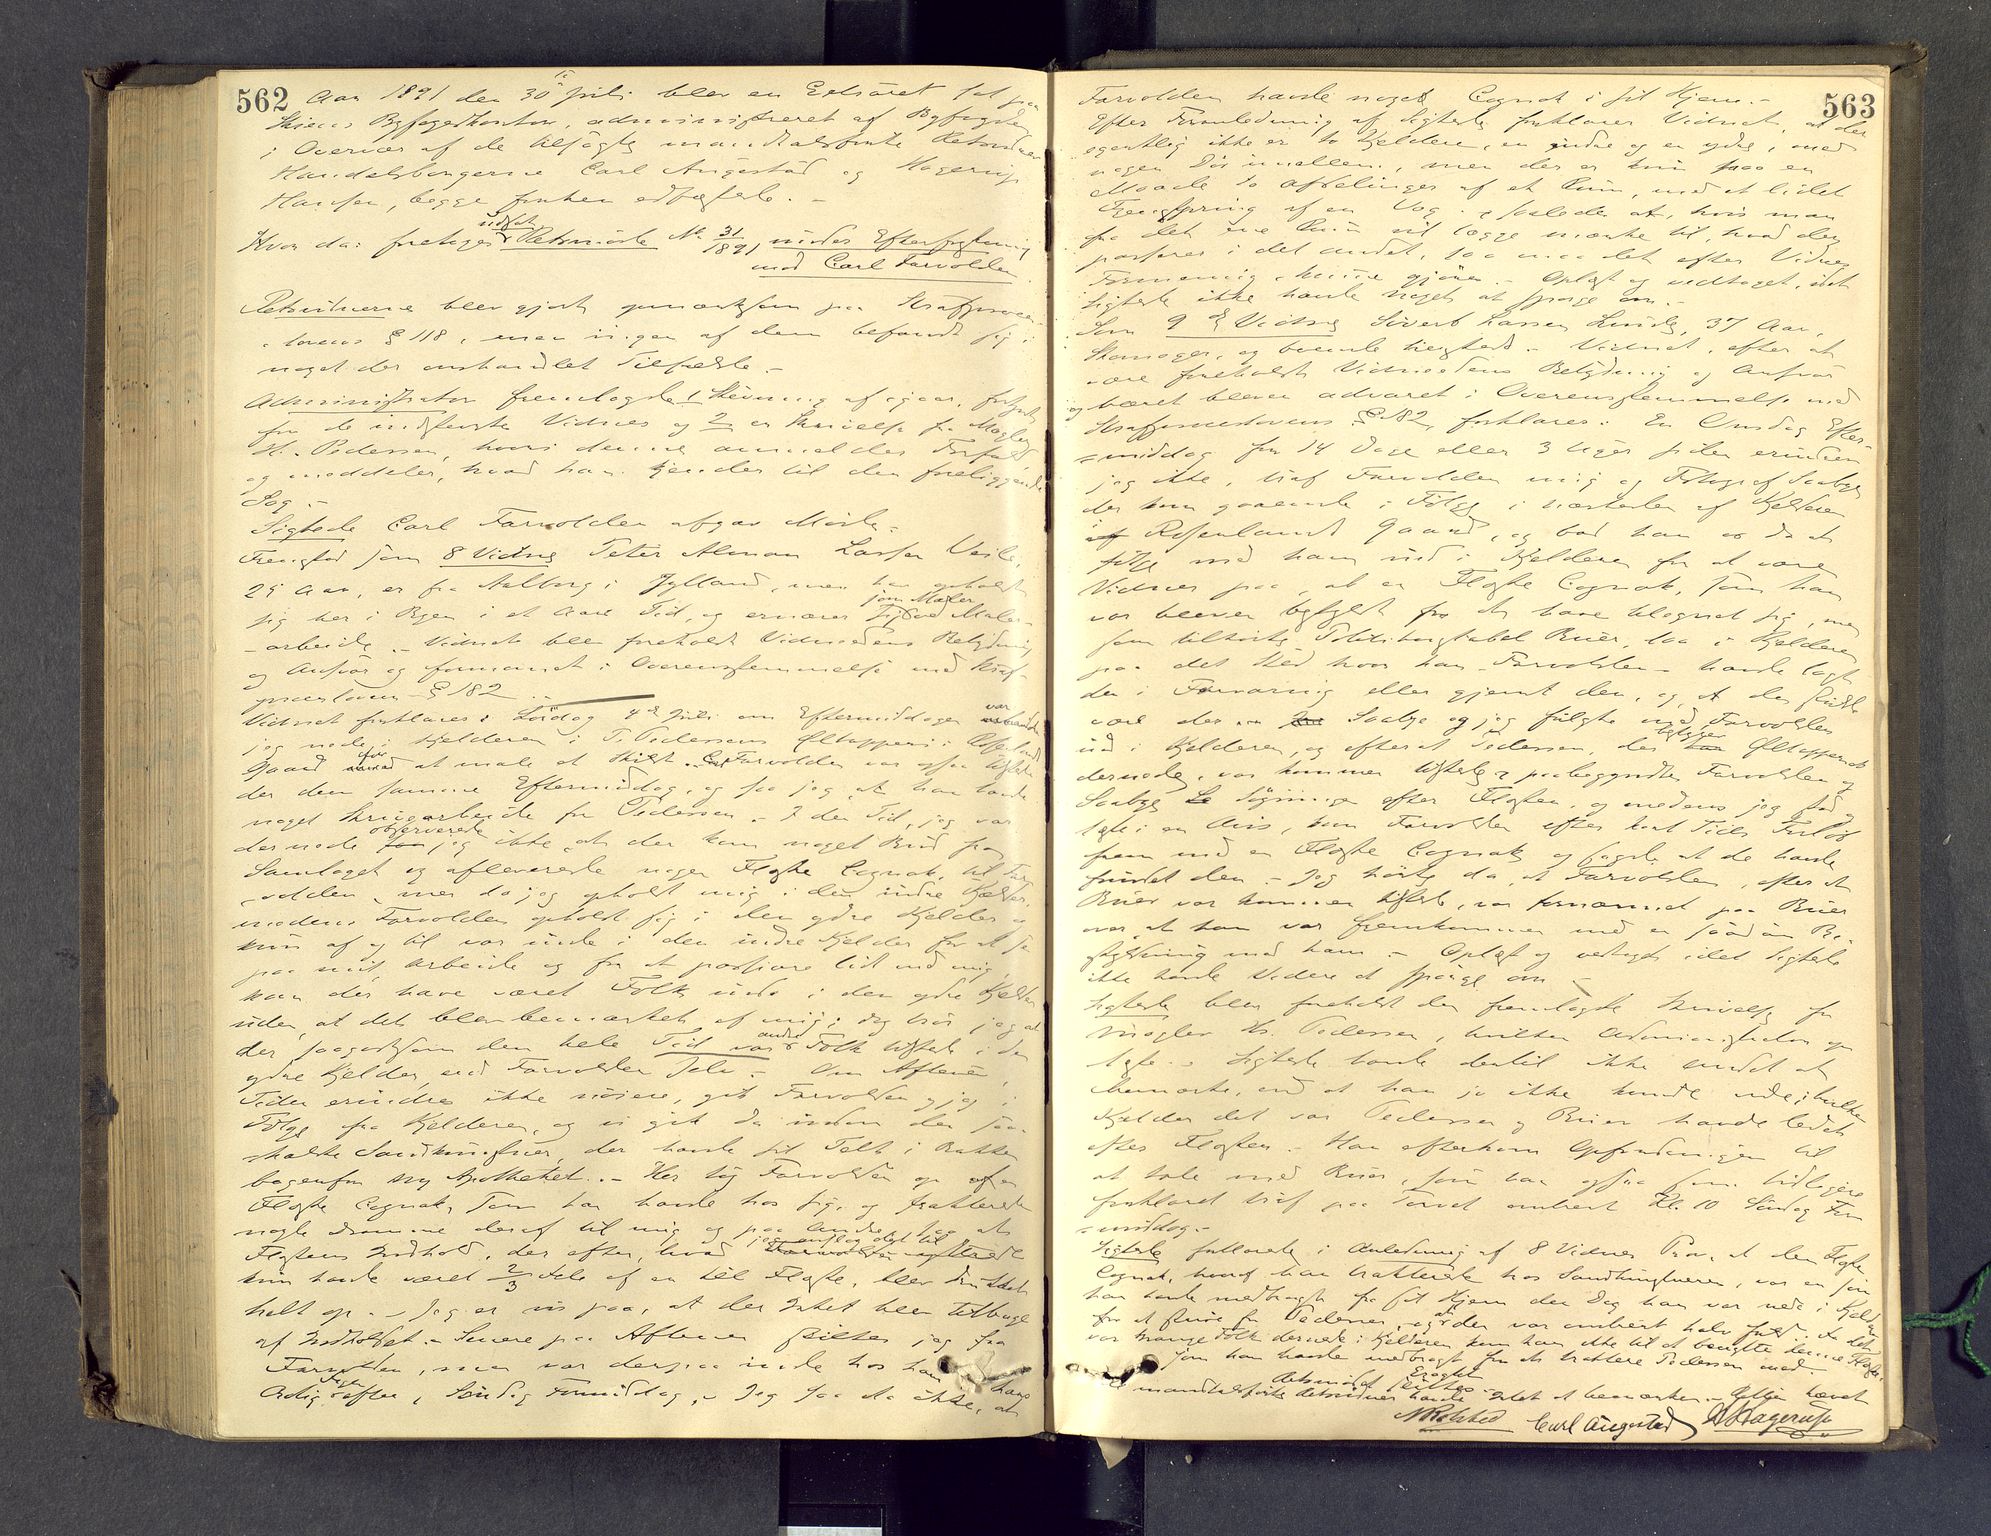 562
Aar 1891 den 30te Juli blev en Extraret sat paa
Skiens Byfogedkontor, administreret af Byfogden
i Overvær af de tilsagte mandtalsførte Retsvidner
Handelsborgerne Carl Augestad og Hagerup
Hansen, begge forhen edfæstede. -
Hvor da: foretoges udsat Retsmøde No 31/1891 under Efterforskning
mod Carl Farvolden
Retsvidnerne blev gjort opmærksom paa Straffproces-
lovens § 118, men ingen af dem befandt sig i
noget der omhandlet Tilfælde. -
Administrator fremlagde 1 Stevning af igaar, forkyndt
for de indstevnte Vidner og 2 en Skrivelse fra Mægler
H. Pedersen, hvori denne anmelder Forfald
og meddeler, hvad han kjender til den foreliggende
Sag. -
Sigtede Carl Farvolden afgav Møde. -
Fremstod som 8 Vidne Peter Alman Larsen Veile,
29 Aar, er fra Aalborg i Jylland, men har opholdt
sig her i Byen i et Aars Tid, og ernærer sig som Maler ved Maler-
arbeide. - Vidnet blev foreholdt Vidneedens Betydning
og Ansvar og formanet i Overensstemmelse med Straf-
proceslovens § 182. -
Vidnet forklarer: Lørdag 4de Juli om Eftermiddagen var
jeg nede i Kjelderen i T. Pedersens Øltapperi i Rosenlunds
Gaard for at male et Skilt. Farvolden var ogsaa tilstede
der den samme Eftermiddag, og saa jeg, at han havde
noget Skriverarbeide for Pedersen. - I den Tid, jeg var
dernede observerede jeg ikke, at der kom noget Bud fra
Samlaget og afleverede nogen Flaske Cognak til Far-
volden, men da jeg opholdt mig i den indre Kjelder,
medens Farvolden opholdt sig i den ydre Kjelder og
kun af og til var inde i den indre Kjelder for at se
paa mit Arbeide og for at passiare lidt med mig,
kan der have været Folk inde i den ydre Kjelder
uden, at det blev bemærket af mig; dog tror jeg at
der saagodtsom den hele Tid var andre Folk tilstede i den
ydre Kjelder, end Farvolden selv. - Om Aftenen,
Tiden erindres ikke nøiere, gik Farvolden og jeg i
Følge fra Kjelderen, og vi gik da indom den saa-
kaldte Sandkunstner, der havde sit Telt i Bakken
bagenfor ny Apotheket. - Her tog Farvolden op en
Flaske Cognak, som han havde hos sig, og trakterede
nogle Dramme deraf til mig og paa andre, saa at
Flaskens Indhold, der efter, hvad jeg antog det til
kun havde været 2/3 Dele af en hel Flaske, blev drukket
helt op. - Jeg er vis paa, at der Intet blev tilbage
af Indholdet. - Senere paa Aftenen skiltes jeg fra
Farvolden, men var derpaa inde hos ham
Dagen efter, Søndag Formiddag, - Jeg saa da ikke, at
563
Farvolden havde noget Cognak i sit Hjem. -
Efter Foranledning af Sigtede forklarer Vidnet, at der
egentlig ikke er to Kjeldere, en indre og en ydre, med
nogen Dør imellem, men der er kun paa en
Maade to Afdelinger af et Rum, med et lidet
Fremspring af en Væg, saaledes at, hvis man
fra det ene Rum vil lægge mærke til, hvad der
passerer i det andet, saa maa det efter Vidnets
Formening kunne gjøres. - Oplæst og vedtaget, idet
Sigtede ikke havde noget at spørge om. -
Som 9de Vidne Sivert Larsen Lunde, 37 Aar,
Skomager, og boende heri Sted. - Vidnet, efter at
være foreholdt Vidneedens Betydning og Ansvar
og været bleven advaret i Overensstemmelse med
Straffproceslovens § 182, forklarer: En Onsdag Efter-
middag for 14 Dage eller 3 Uger siden erindrer
jeg ikke, traf Farvolden mig og Fotograf Saabye
der kom gaaende i Følge i nærheden af Kjelderen
i Rosenlunds Gaard, og bad han os da at
følge med ham ind i Kjelderen for at være
Vidner paa, at en Flaske Cognak, som han
var bleven beskyldt for at have tilegnet sig, men
som tilhørte Politikonstabel Buer, laa i Kjelderen
paa det Sted hvor han - Farvolden - havde lagt
den i Forvaring eller gjemt den, og at den skulde
være der. - Saabye og jeg fulgte med Farvolden
ind i Kjelderen, og efterat Pedersen, der bestyrer Øltapperiet
dernede, var kommen tilstede, paabegyndte Farvolden og
Saabye Søgningen efter Flasken, og medens jeg stod
læste i en Avis, kom Farvolden efter kort Tids Forløb
frem med en Flaske Cognak og sagde, at de havde
fundet den. - Jeg hørte da, at Farvolden, efter at
Buer var kommen tilstede, var fornærmet paa Buer
over, at han var fremkommen med en saadan Be-
skyldning mod ham. - Oplæst og vedtaget, idet Sigtede
ikke havde videre at spørge om. -
Sigtede blev foreholdt den fremlagte Skrivelse fra
Mægler H. Pedersen, hvilken Administrator op-
læste. - Sigtede havde dertil ikke andet at
bemærke, end at han jo ikke kunde vide, i hvilken
Kjelder det var Pedersen og Buer havde ledet
efter Flasken. - Han efterkom Opfordringen til
at tale med Buer, som han ogsaa som tidligere
forklaret traf paa Torvet omkring Kl. 10 Søndag For-
middag. -
Sigtede forklarede, i Anledning af 8 Vidnes Prov, at den Flaske
Cognak, hvoraf han trakterede hos Sandkunstneren, var en som
han havde medbragt fra sit Hjem den Dag han var nede i Kjelderen
for at skrive for Pedersen, og at den var omkring halv fuld. Da det
var mange Folk dernede i Kjelderen kom han ikke til at benytte denne Flaske,
som han havde medbragt for at traktere Pedersen med. -
De mandtalsførte Retsvidner havde Intet at bemærke. - Retten hævet
N Rolsted Carl Augestad H Hagerup